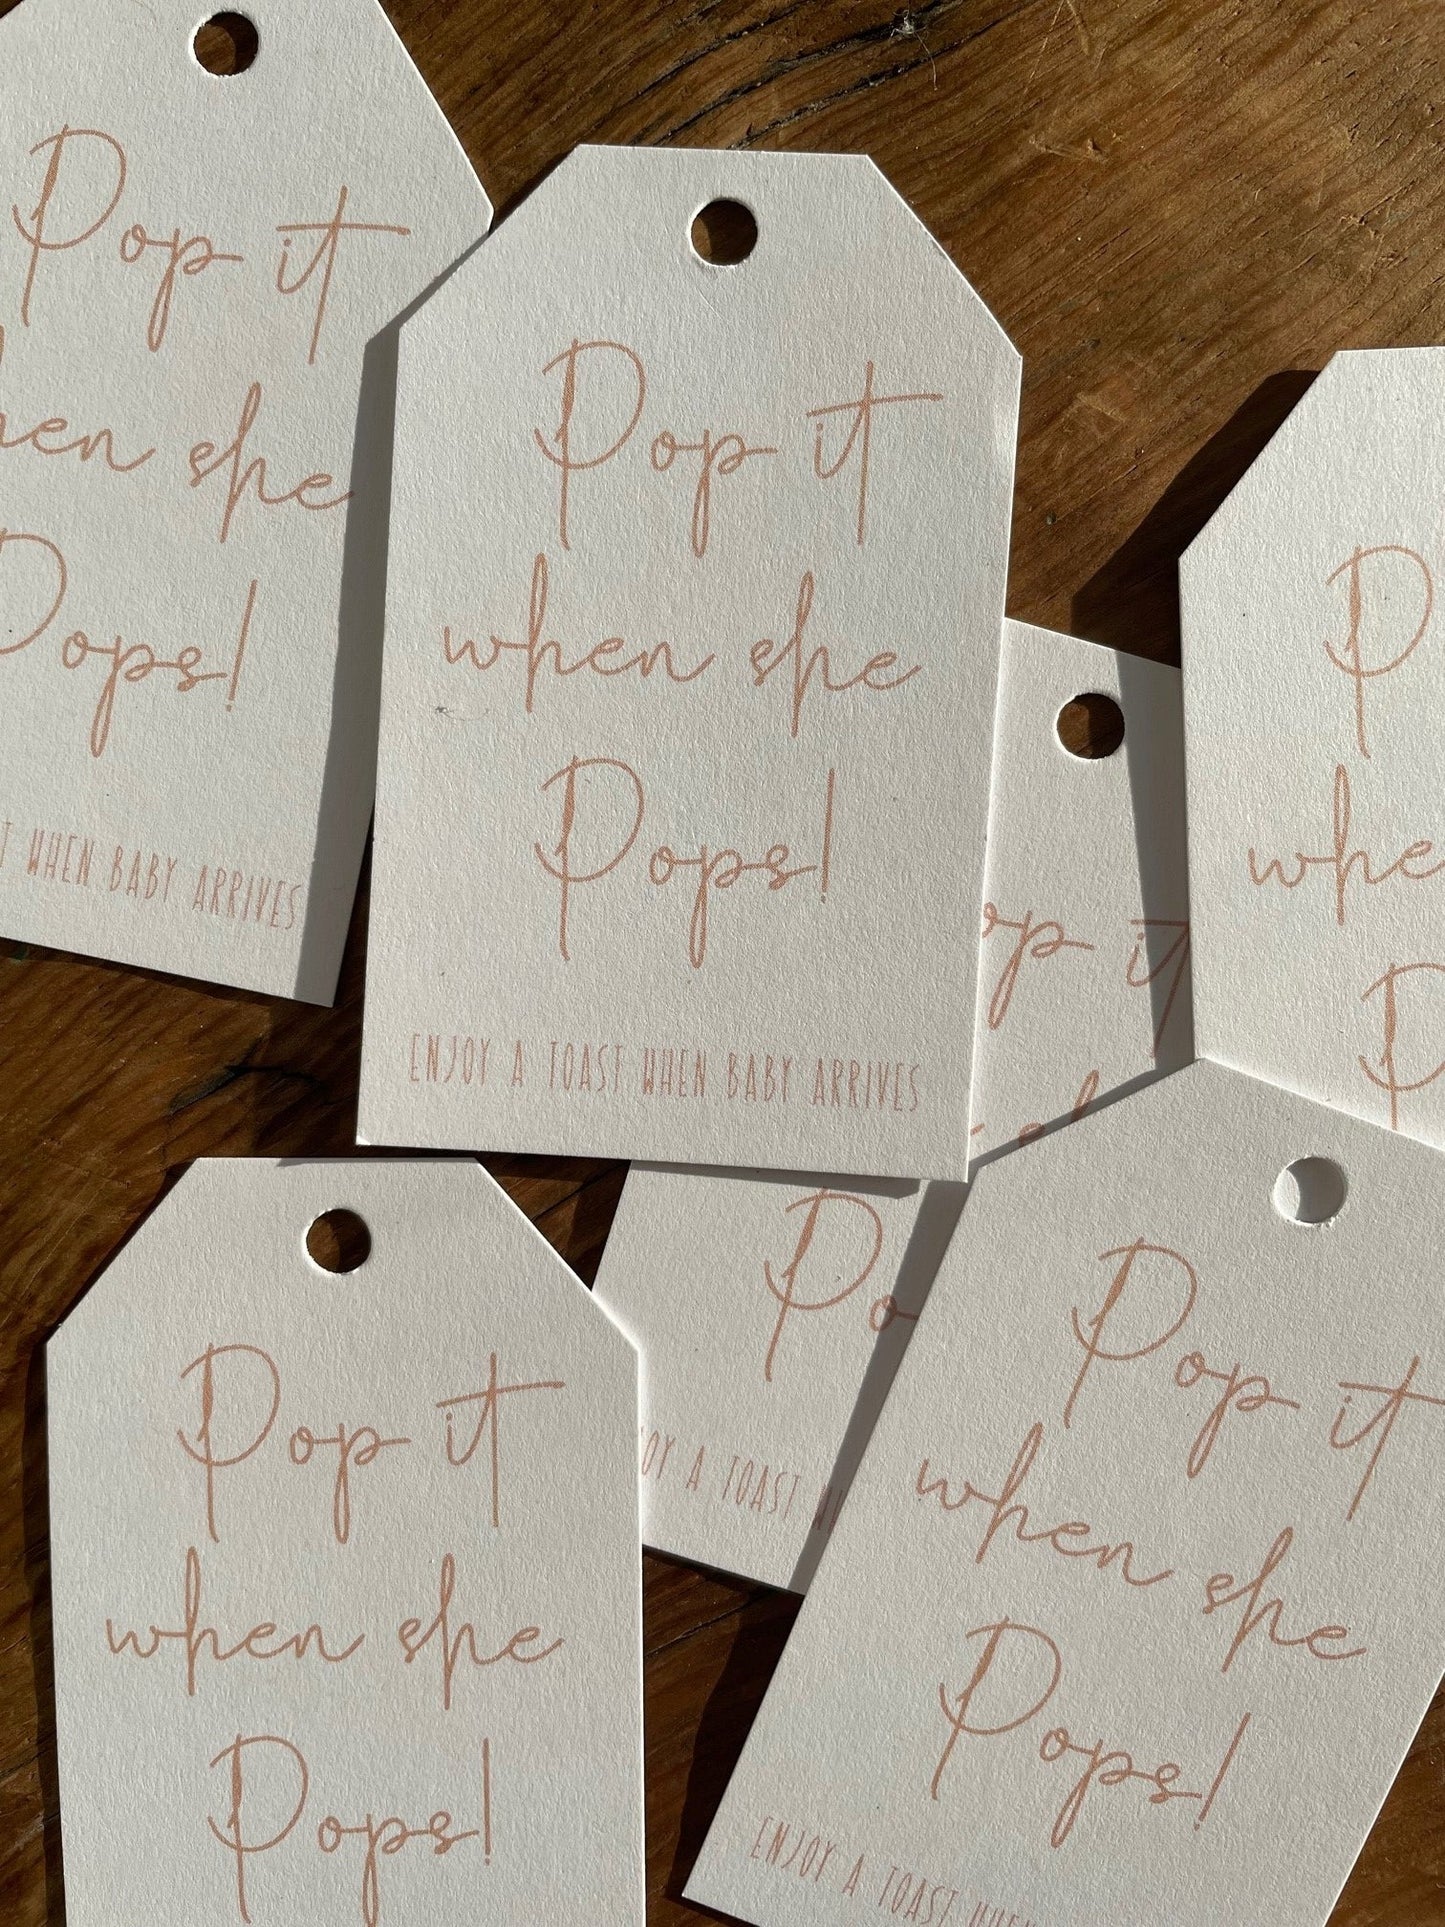 Pop it
when she
Pops!
WHEN BABY ARRIVES
Pop it
when she
Pops!
ENJOY A TOAST WHEN BABY ARRIVES
it
Pop it
when she
Pops!
A TOAST
Pop it
when she
Pops!
ENJOY A TOAST WHEN